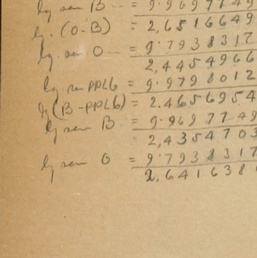 lg sen B = 9.9697749
lg. (O-B) = 2,6516649
lg. sen O = 9.7938317
2,4454966
lg sen PPL6 = 9.9798012
lg (B-PPL6) = 2.4656954
lg sen B = 9.9697749
2,4354703
lg sen O = 9.7938317
2.6416381